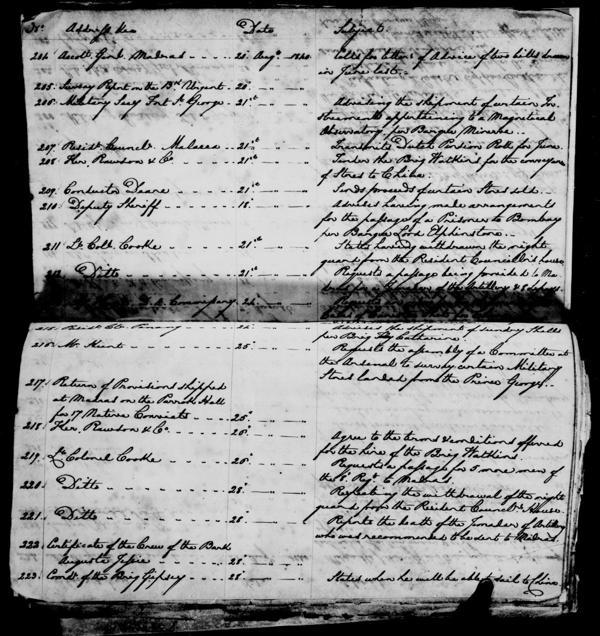 No. Address &ca Date Subject
204. Accott. Genl. Madras 20 Augt. 1840 Calls for letters of Advice of two bills drawn
in June last.
205. Survey Report on the Urgent 20.
206. Military Secy. Fort St. George 21st Advising the shipment of certain In-
struments appertaining to a Magnetical
Observatory per Barque Minerva.
207. Residt. Councr. Malacca 21st Transmits Dated Pension Roll for June.
208. Rawson & Co. 21st Tenders the Brig Watkins for the conveyance
of Stores to China.
209. Conductor Deane 21st Sends proceeds of certain Stores sold.
210. Deputy Sheriff 18. Advises having made arrangements
for the passage of a Prisoner to Bombay
per Barque Lord Elphinstone.
211. Lt. Coll. Cooke 21st States having withdrawn the night
guard from the Resident Councillor's house
212. Ditto 21st Requests a passage being provided to Ma-
of the Artillery & Sepoys
D. A. Commissary 24. Requests
Penang Advises the shipment of sundry
per Brig Catharine.
216. Mr. 25. Requests the assembly of a Committee at
the Arsenal to survey certain Military
Stores landed from the Prince George.
217. Return of Provisions shipped
at Madras on the Bark Hall
for 17 Native Convicts 25.
218. Rawson & Co. 26. Agree to the terms & conditions offered
for the hire of the Brig Watkins.
219. Lt. Colonel Cooke 26. Requests a passage for 5 more men of
the 8. Regt. to Madras.
220. Ditto 28. Repeating the withdrawal of the night
guard from the Resident Councrs. House.
221. Ditto 28. Reports the death of the Jemadar of Artillery
who was recommended to be sent to Madras.
222. Certificate of the Crew of the Bark
Augusta Jessie 28.
223. Comdr. of the Brig Gipsey 28. States when he will be able to sail to China